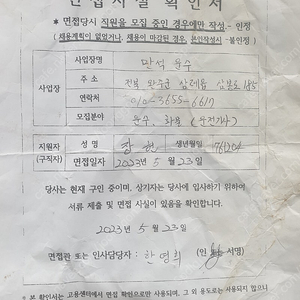 면접사실 확인서
* 면접당시 직원을 모집 중인 경우에만 작성 - 인정
(채용계획이 없었거나, 채용이 마감된 경우, 본인작성시 - 불인정)
사업장
사업장명 만석
주 소 전북 완주군 삼례읍 삼봉로 185
연락처 010-3655-6617
모집분야 (운전기사)
지원자
(구직자)
성 명
생년월일 761204
면접일자 2023년 5월 23일
당사는 현재 구인 중이며, 상기자는 당사에 입사하기 위하여
서류 제출 및 면접 사실이 있음을 확인합니다.
2023년 5월 23일
면접관 또는 인사담당자 : 한영희 (인 / 서명)
※ 고용센터에서 면접 확인으로만 사용되며, 그 외 용도로는 사용되지 않으니